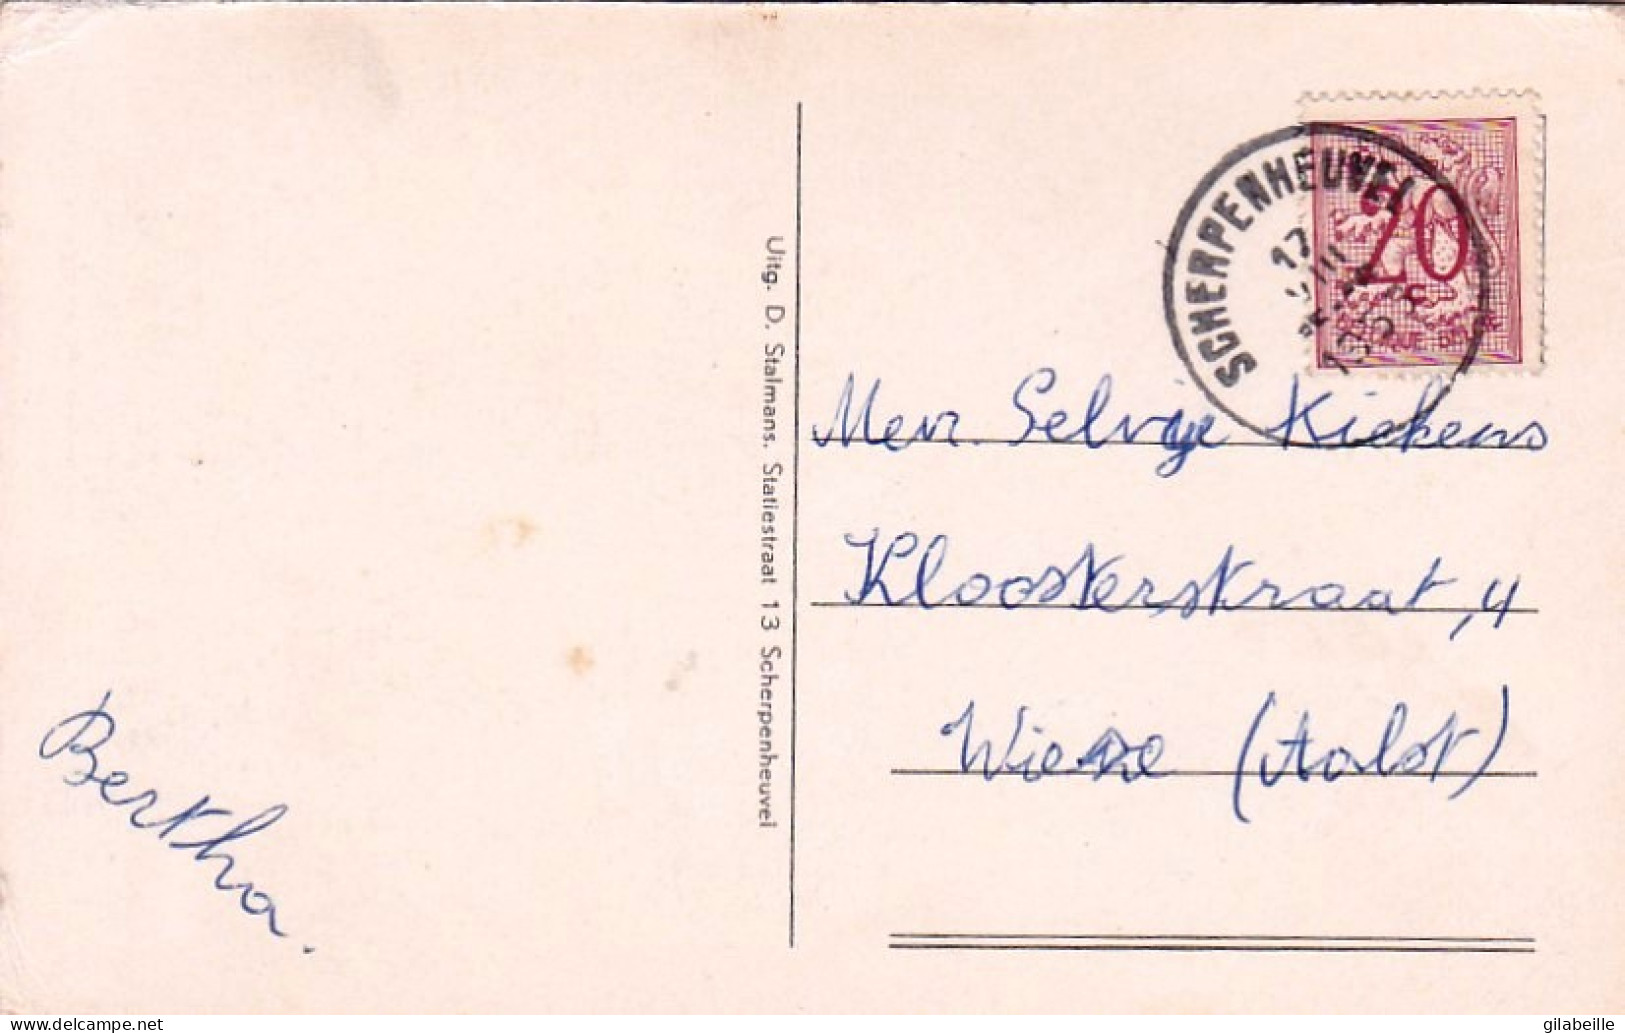 SCHERPENHEUVEL
17
VIII
20
BELGIQUE
Uitg. D. Stalmans. Statiestraat 13 Scherpenheuvel
Mevr. Selvije Kiekens
Kloosterstraat, 4
Wieze (Aalst)
Bertha.
delcampe.net
gilabeille